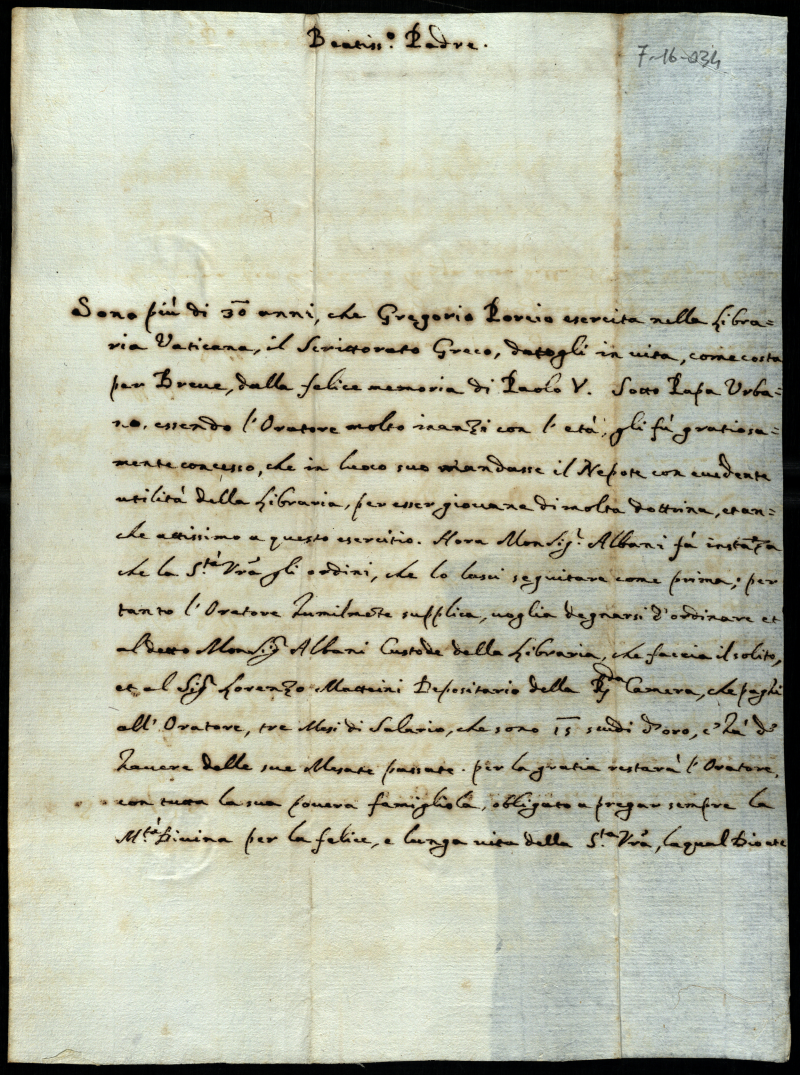 Beatiss.º Padre.
7-16-034
Sono più di 30 anni, che Gregorio Porcio esercita nella Libra=
ria Vaticana, il Scrittorato Greco, datogli in vita, come costa
per Breue, dalla felice memoria di Paolo V. Sotto Papa Urba=
no, essendo l'Oratore molto inanzi con l'età, gli fù gratiosa=
mente concesso, che in luoco suo mandasse il Nepote con euidente
utilità della Libraria, per esser giouane di molta dottrina, et an=
che attissimo a questo esercitio. Hora Monsig.r Albani fà instãza
che la S.tà Vrã gli ordini, che lo lasci seguitare come prima; per
tanto l'Oratore humilmẽte supplica, uoglia degnarsi d'ordinare et
al detto Monsig.r Albani Custode della Libraria, che faccia il solito,
et al Sig.r Lorenzo Matteini Depositario della Camera, che paghi
all'Oratore, tre Mesi di Salario, che sono 15 scudi d'oro, e hà d'
hauere delle sue Mesate passate. per la gratia restarà l'Oratore,
con tutta la sua pouera famigliola, obligato a pregar sempre la
M.tà Diuina per la felice, e lunga uita della S.tà Vrã, la qual Dio etc